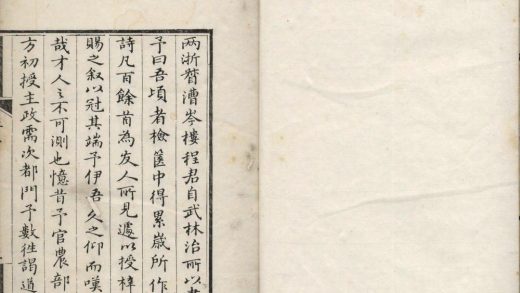 两浙督漕岑樓程君自武林治所以書
予曰吾頃者檢篋中得累歲所作
詩凡百餘首為友人所見遽以授梓
賜之叙以冠其端予伊吾久之仰而嘆
哉才人之不可測也憶昔予官農部
方初授主政需次都門予數徃謁道